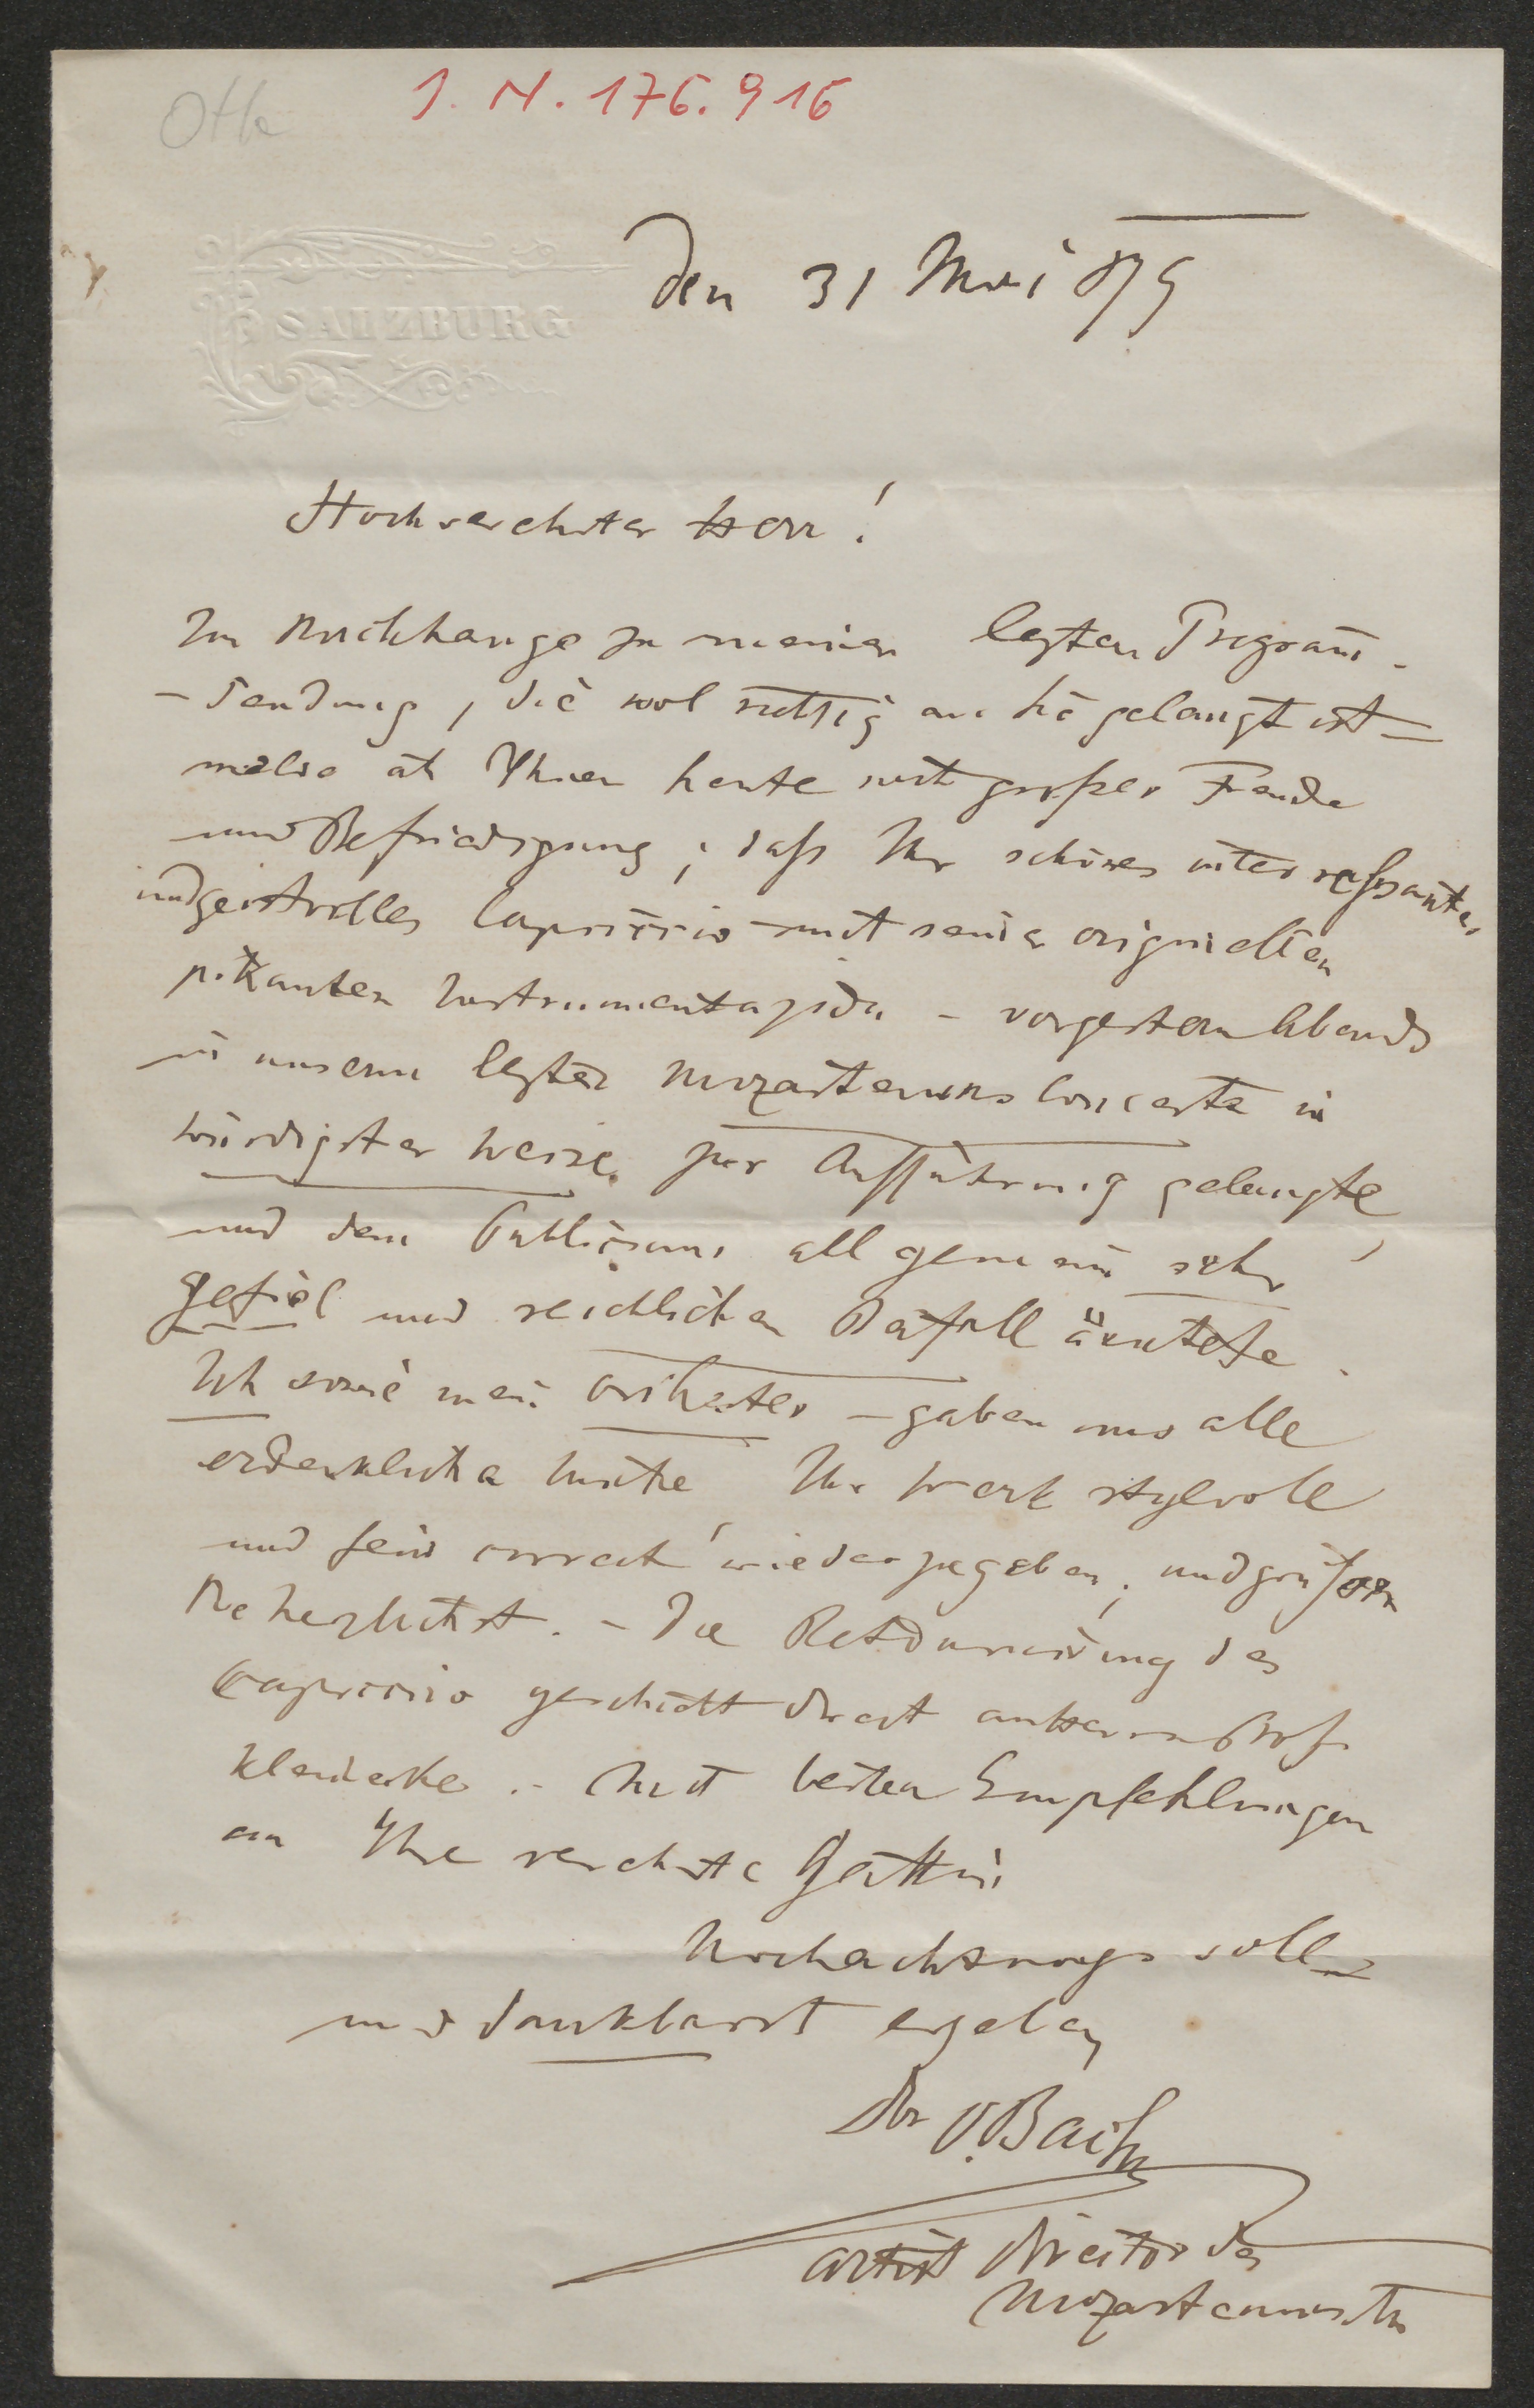 Otto
I. N. 176.916
SALZBURG
den 31 Mai 879
Hochverehrter Herr!
Im Nachhange zu meiner letzten Program̅-
-Sendung, die wol richtig an Sie gelangt ist –
melde ich Ihnen heute mit großer Freude
und Befriedigung, daß Ihr schönes interressantes
und geistvolles Capriccio mit seiner originellen
pikanten Instrumentazion – vorgestern Abends
in unserm letzten Mozarteums Concerte in
würdigster Weise zur Aufführung gelangte
und dem Publicum allgemein sehr
gefiel und reichlichen Beifall ärntete.
Ich sowie mein Orchester – gaben uns alle
erdenkliche Mühe Ihr Werk stylvoll
und fein correct wiederzugeben, und grüßen
Sie herzlichst. – Die Retournirung des
Capriccio geschieht direct an Herrn Prof.
. – Mit besten Empfehlungen
an Ihre verehrte Gattin
Hochachtungsvoll
und dankbarst ergeben
Dr O. Bach
artist Director des
Mozarteums